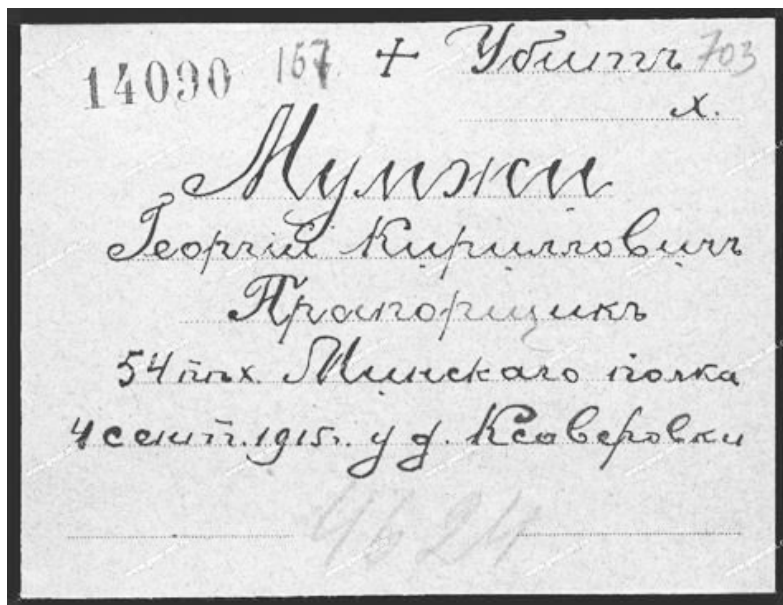 14090 157 + Убитъ 703
х.
Мумжи
Георгій Кирилловичъ
Прапорщикъ
54 пѣх. Минскаго полка
4 сент. 1915 г. у д. Ксаверовки
4624